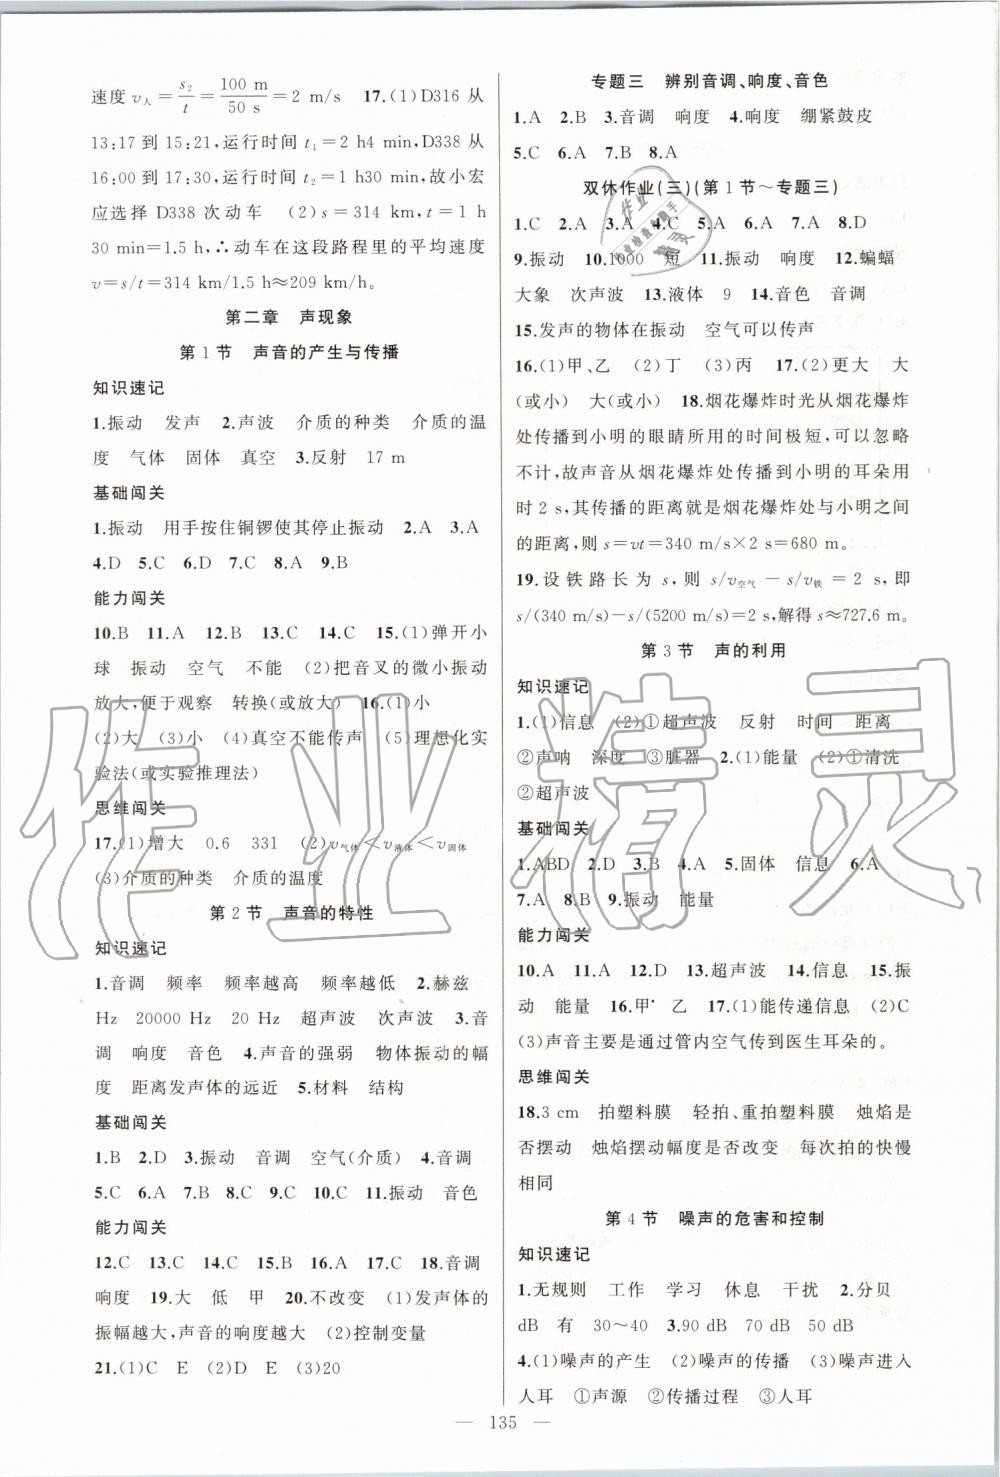 速度v人=s2/t=100 m/50 s=2 m/s 17.(1)D316 从
13:17 到 15:21,运行时间 t1=2 h4 min,D338 从
16:00 到 17:30,运行时间 t2=1 h30 min,故小宏
应选择 D338 次动车 (2)s=314 km,t=1 h
30 min=1.5 h,∴动车在这段路程里的平均速度
v=s/t=314 km/1.5 h≈209 km/h。
第二章 声现象
第1节 声音的产生与传播
知识速记
1.振动 发声 2.声波 介质的种类 介质的温
度 气体 固体 真空 3.反射 17 m
基础闯关
1.振动 用手按住铜锣使其停止振动 2.A 3.A
4.D 5.C 6.D 7.C 8.A 9.B
能力闯关
10.B 11.A 12.B 13.C 14.C 15.(1)弹开小
球 振动 空气 不能 (2)把音叉的微小振动
放大,便于观察 转换(或放大) 16.(1)小
(2)大 (3)小 (4)真空不能传声 (5)理想化实
验法(或实验推理法)
思维闯关
17.(1)增大 0.6 331 (2)v气体<v液体<v固体
(3)介质的种类 介质的温度
第2节 声音的特性
知识速记
1.音调 频率 频率越高 频率越低 2.赫兹
Hz 20000 Hz 20 Hz 超声波 次声波 3.音
调 响度 音色 4.声音的强弱 物体振动的幅
度 距离发声体的远近 5.材料 结构
基础闯关
1.B 2.D 3.振动 音调 空气(介质) 4.音调
5.C 6.A 7.B 8.C 9.C 10.C 11.振动 音色
能力闯关
12.C 13.C 14.C 15.B 16.C 17.C 18.音调
响度 19.大 低 甲 20.不改变 (1)发声体的
振幅越大,声音的响度越大 (2)控制变量
21.(1)C E (2)D E (3)20
专题三 辨别音调、响度、音色
1.A 2.B 3.音调 响度 4.响度 绷紧鼓皮
5.C 6.A 7.B 8.A
双休作业(三)(第1节~专题三)
1.C 2.A 3.A 4.C 5.A 6.A 7.A 8.D
9.振动 10.1000 短 11.振动 响度 12.蝙蝠
大象 次声波 13.液体 9 14.音色 音调
15.发声的物体在振动 空气可以传声
16.(1)甲、乙 (2)丁 (3)丙 17.(2)更大 大
(或小) 大(或小) 18.烟花爆炸时光从烟花爆炸
处传播到小明的眼睛所用的时间极短,可以忽略
不计,故声音从烟花爆炸处传播到小明的耳朵用
时 2 s,其传播的距离就是烟花爆炸处与小明之间
的距离,则 s=vt=340 m/s×2 s=680 m。
19.设铁路长为 s,则 s/v空气-s/v铁=2 s,即
s/(340 m/s)-s/(5200 m/s)=2 s,解得 s≈727.6 m。
第3节 声的利用
知识速记
1.(1)信息 (2)①超声波 反射 时间 距离
②声呐 深度 ③脏器 2.(1)能量 (2)①清洗
②超声波
基础闯关
1.ABD 2.D 3.B 4.A 5.固体 信息 6.A
7.A 8.B 9.振动 能量
能力闯关
10.A 11.A 12.D 13.超声波 14.信息 15.振
动 能量 16.甲 乙 17.(1)能传递信息 (2)C
(3)声音主要是通过管内空气传到医生耳朵的。
思维闯关
18.3 cm 拍塑料膜 轻拍、重拍塑料膜 烛焰是
否摆动 烛焰摆动幅度是否改变 每次拍的快慢
相同
第4节 噪声的危害和控制
知识速记
1.无规则 工作 学习 休息 干扰 2.分贝
dB 有 30~40 3.90 dB 70 dB 50 dB
4.(1)噪声的产生 (2)噪声的传播 (3)噪声进入
人耳 ①声源 ②传播过程 ③人耳
— 135 —
作业精灵